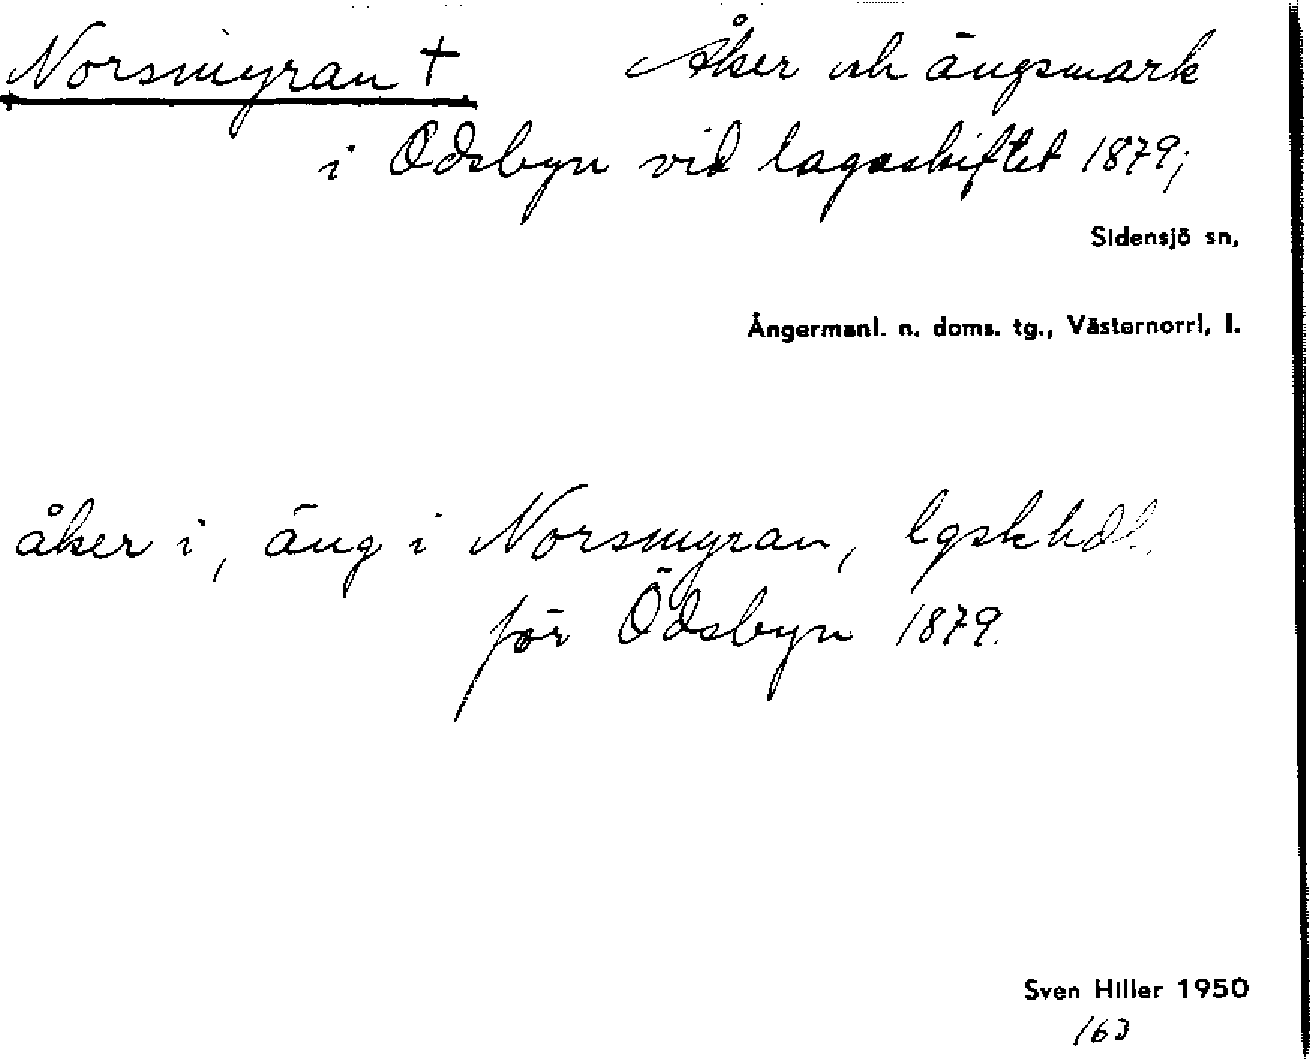 Norsmyran † Åker och ängsmark
i Ödsbyn vid lagaskiftet 1879;
Sidensjö sn,
Ångermanl. n. doms. tg., Västernorrl. l.
åker i, äng i Norsmyran, lgskhdl.
för Ödsbyn 1879.
Sven Hiller 1950
163